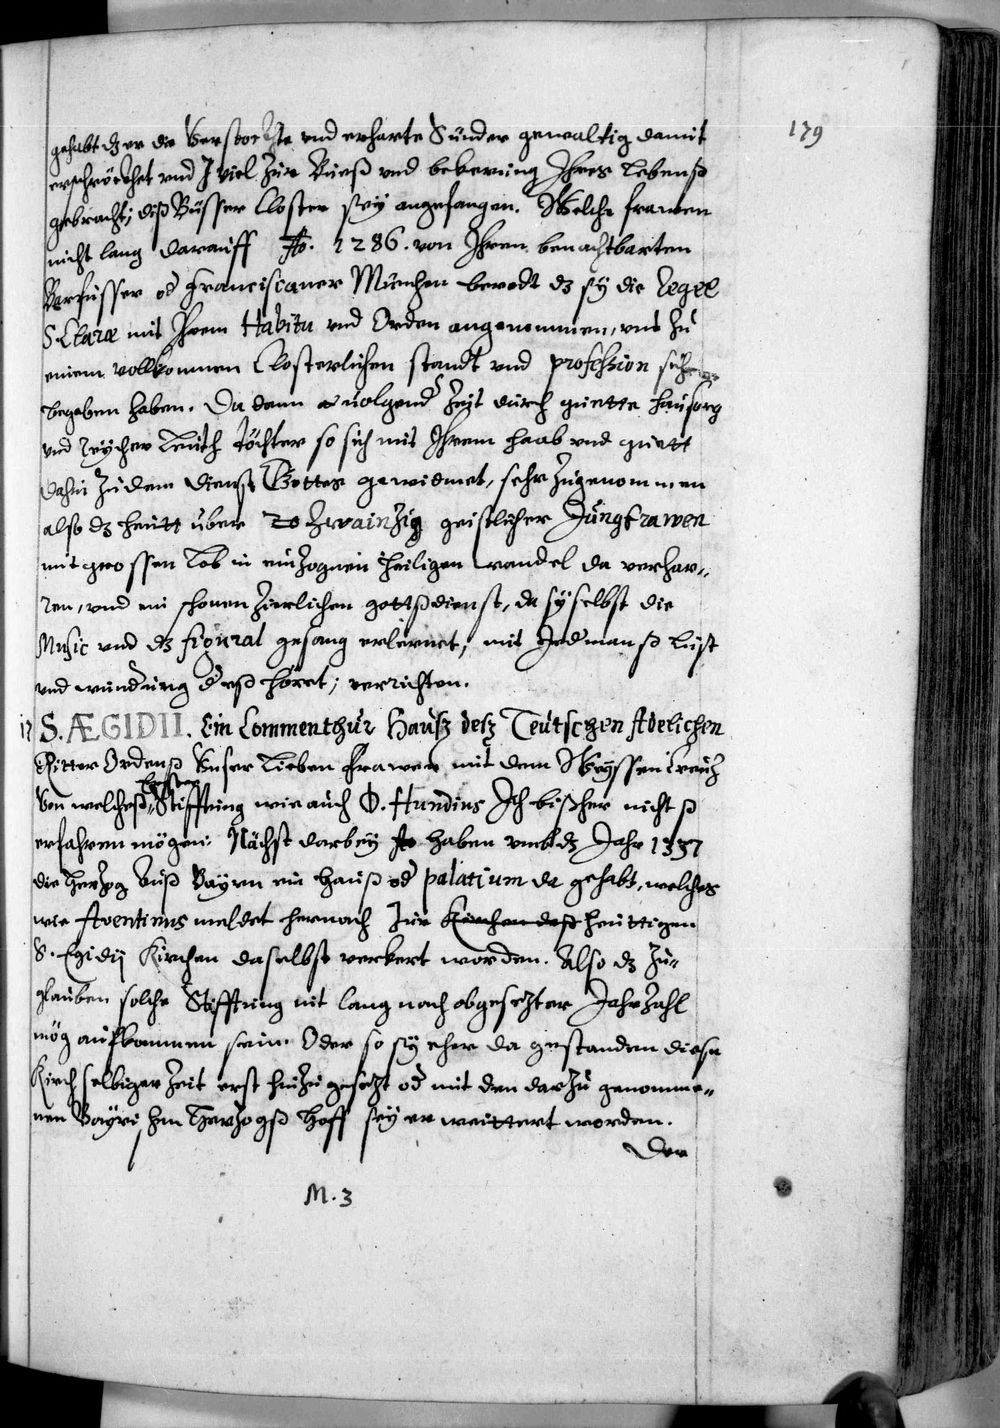 179
gehabt dz er die Verstockte vnd erharte Sünder gewaltig damit
erschröckhet vnd viel zur Bueß vnd bekerung Ihres Lebenß
gebracht; diß Büsser Closter sey angefangen. Welche frawen
nicht lang darauff Ao. 1286. von Ihren benachtbarten
Barfüsser od Franciscaner München beredt dz sy die Regel
S. Claræ mit Ihrem Habitu vnd Orden angenommen, vnd zu
einem vollkomnen Closterlichen standt vnd profession sich
begeben haben. Da dann volgend Zeit durch guette haußorg
vnd Reycher Leuth töchter so sich mit Ihrem haab vnd guett
dahin zu dem dienst Gottes gewidmet, sehr zugenommen
also dz heutt über 20 Zwainzig geistlicher Jungfrawen
mit grossen Lob in einzognen heiligen wandel da verhar„
ren, vnd ein schonen zierlichen gottßdienst, da sy selbst die
Music vnd dz figural gesang erlernet, mit Jedmanß lust
vnd wundrung d eß höret; verrichten.
17 S. ÆGIDII. Ein Commenthur Hausz desz Teutschen Adelichen
Ritter Ordenß Vnser Lieben Frawen mit dem Weyssen Creuz
Von welcheß Ersten Stifftung wie auch D. Hundius Ich bißher nichtß
erfahren mögen: Nächst darbey Ao haben vmb dz Jahr 1337
die Herzog auß Bayrn ein Hauß od palatium da gehabt, welches
wie Aventinus meldet hernach zur Kirchen deß heuttigen
S. Egidij Kirchen daselbst verkert worden. Also dz zu„
glauben solche Stifftung nit lang nach obgesezter Jahrzahl
mög aufkommen sein. Oder so sy eher da gestanden diese
Kirch selbiger Zeit erst hinzu gesezt od mit den darzu genomme„
nen Bayrischen Herzogß Hoff sey erweittert worden.
Der
M. 3